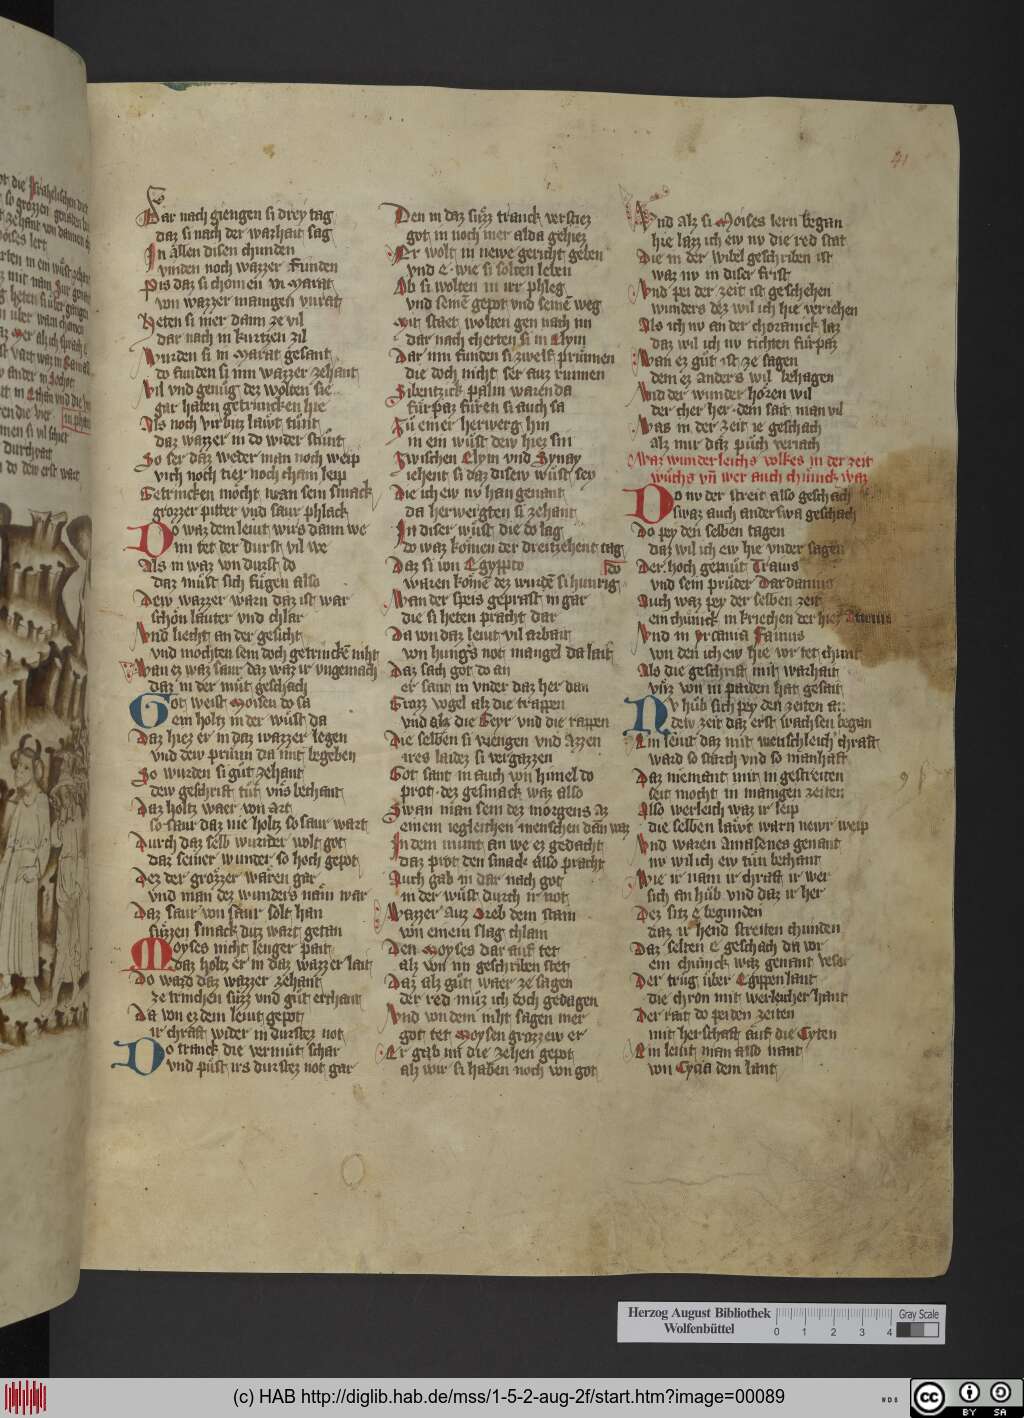 41
Dar nach giengen si drey tag
daz si nach der warhait sag
In allen disen chunden
vinden noch wazzer funden
Pis daz si chomen in Marat
von wazzer manigen vnrat
Heten si mer dann ze vil
dar nach in kurtzen zil
Wurden si in Marat gesant
do funden si inn wazzer zehant
Vil vnd genůg dez wolten sie
gar haben getruncken hie
Als noch vil durstig laůt tůnt
daz wazzer in do wider stůnt
So ser daz weder man noch weip
vich noch tier noch chain leip
Getrincken mȯcht wan sein smack
grozzer pitter vnd saur phlack
Do waz dem leiut wirs dann we
inn tet der durst vil we
Als in waz von durst do
daz můst sich fůgen also
Dew wazzer warn daz ist war
schȯn lauter vnd chlar
Vnd liecht an der gesicht
vnd mochten sein doch getrinckē niht
Wan ez waz saur daz waz ir vngemach
daz in der můt geschach
Got weist Moisen do sa
ein holtz in der wůst da
Daz hiez er in daz wazzer legen
vnd dew prunn da mit begeben
So wurden si gůt zehant
dew geschrift tůt vns bechant
Daz holtz waer von art
so saur daz nie holtz so saur wart
Durch daz selb wunder wolt got
daz seiner wunder so hoch gepot
Dez der grȯzzer waren gar
vnd man dez wunders nam war
Daz saur von saur solt han
sůzzen smack dutz wart getan
Moyses nicht lenger pait
daz holtz er in daz wazzer lait
Do ward daz wazzer zehant
ze trinchen sůzz vnd gůt erchant
Da von ez dem leiut gepot
ir chraft wider in durstez not
Do tranck die vermůt schar
vnd půst irs durstez not gar
Den in daz sůzz tranck verstiez
got in noch mer alda gehiez
Er wolt in newe gericht geben
vnd e wie si solten leben
Ob si wolten in irr phleg
vnd seinē gepot vnd seinē weg
Mit staet wolten gen nach im
dar nach cherten si in Elym
Dar inn funden si zwelf prunnen
die doch nicht ser auz runnen
Sibentzick palm waren da
fůrpaz fůren si auch sa
Zů einer herwerg hin
in ein wůst dew hiez sin
Zwischen Elym vnd Synay
iehent si daz disew wůst sey
Die ich ew nv han genant
da herwergten si zehant
In diser wůst die do lag
do waz komen der dreitzehent tag
Daz si von Egypto do
waren komē dez wurdē si hunrig
Wan der speis geprast in gar
die si heten pracht dar
Da von daz leiut vil arbait
von hungers not mangel da lait
Daz sach got do an
er sant in vnder daz her dan
Grozz vogel alz die trappen
vnd alz die Geyr vnd die rappen
Die selben si viengen vnd azzen
ires laidez si vergazzen
Got sant in auch von himel do
prot dez gesmack waz also
Swan man sein dez morgens az
einem iegleichen menschen dan waz
In dem munt an we ez gedacht
daz prot den smack also pracht
Auch gab in dar nach got
in der wůst durch ir not
Wazzer auz Oreb dem stain
von einem slag chlain
Den Moyses dar auf tet
alz von im geschriben stet
Daz alz gůt waer ze sagen
der red můz ich doch gedagen
Vnd von dem niht sagen mer
got tet Moysen grozzew er
Er gab im die zehen gepot
alz wir si haben noch von got
Vnd alz si Moises lern began
hie lazz ich ew nv die red stat
Die in der wibel geschriben ist
waz nv in diser frist
Vnd pei der zeit ist geschehen
wunders dez wil ich hie veriehen
Als ich nv an der choranick laz
daz wil ich nv tichten fůrpaz
Wan ez gůt ist ze sagen
dem ez anders wil behagen
Vnd der wunder hȯren wil
der cher her dem sait man vil
Was in der zeit ie geschach
alz mir daz půch veriach
Waz wunderleichs volkes in der zeit
wůchs vn wer auch chůnick waz
Do nv der streit also geschach
swaz auch anderswa geschach
Do pey den selben tagen
daz wil ich ew hie vnder sagen
Der hoch gemůt Traius
vnd sein průder Dardanus
Auch waz pey der selben zeit
ein chůnick in kriechen der hiez
Vnd in Yrcania Faunus
von den ich ew hie vor tet chunt
Als die geschrift mit warhait
vnz von in paiden hat gesait
Nv hůb sich pey den zeiten an
dew zeit daz erst wachsen began
Ein leiut daz mit menschleich chraft
ward so starch vnd so manhaft
Daz niemant mir in gestreiten
seit mocht in manigen zeiten
Also werleich waz ir leip
die selben laůt warn newr weip
Vnd waren Amasones genant
nv wil ich ew tůn bechant
Wie ir nam ir chraft ir wer
sich an hůb vnd daz ir her
Dez sitz e begunden
daz ir hend streiten chunden
Daz selten e geschach da vor
ein chůnick waz genant vesor
Der trůg ůber Egippen lant
die chron mit werleicher hant
Der rait do pei den zeiten
mit herschaft auf die Cyten
Ein leiut man also nant
von Cycia dem lant
Herzog August Bibliothek
Wolfenbüttel
0 1 2 3 4
Gray Scale
(c) HAB http://diglib.hab.de/mss/1-5-2-aug-2f/start.htm?image=00089
WDB
cc BY SA